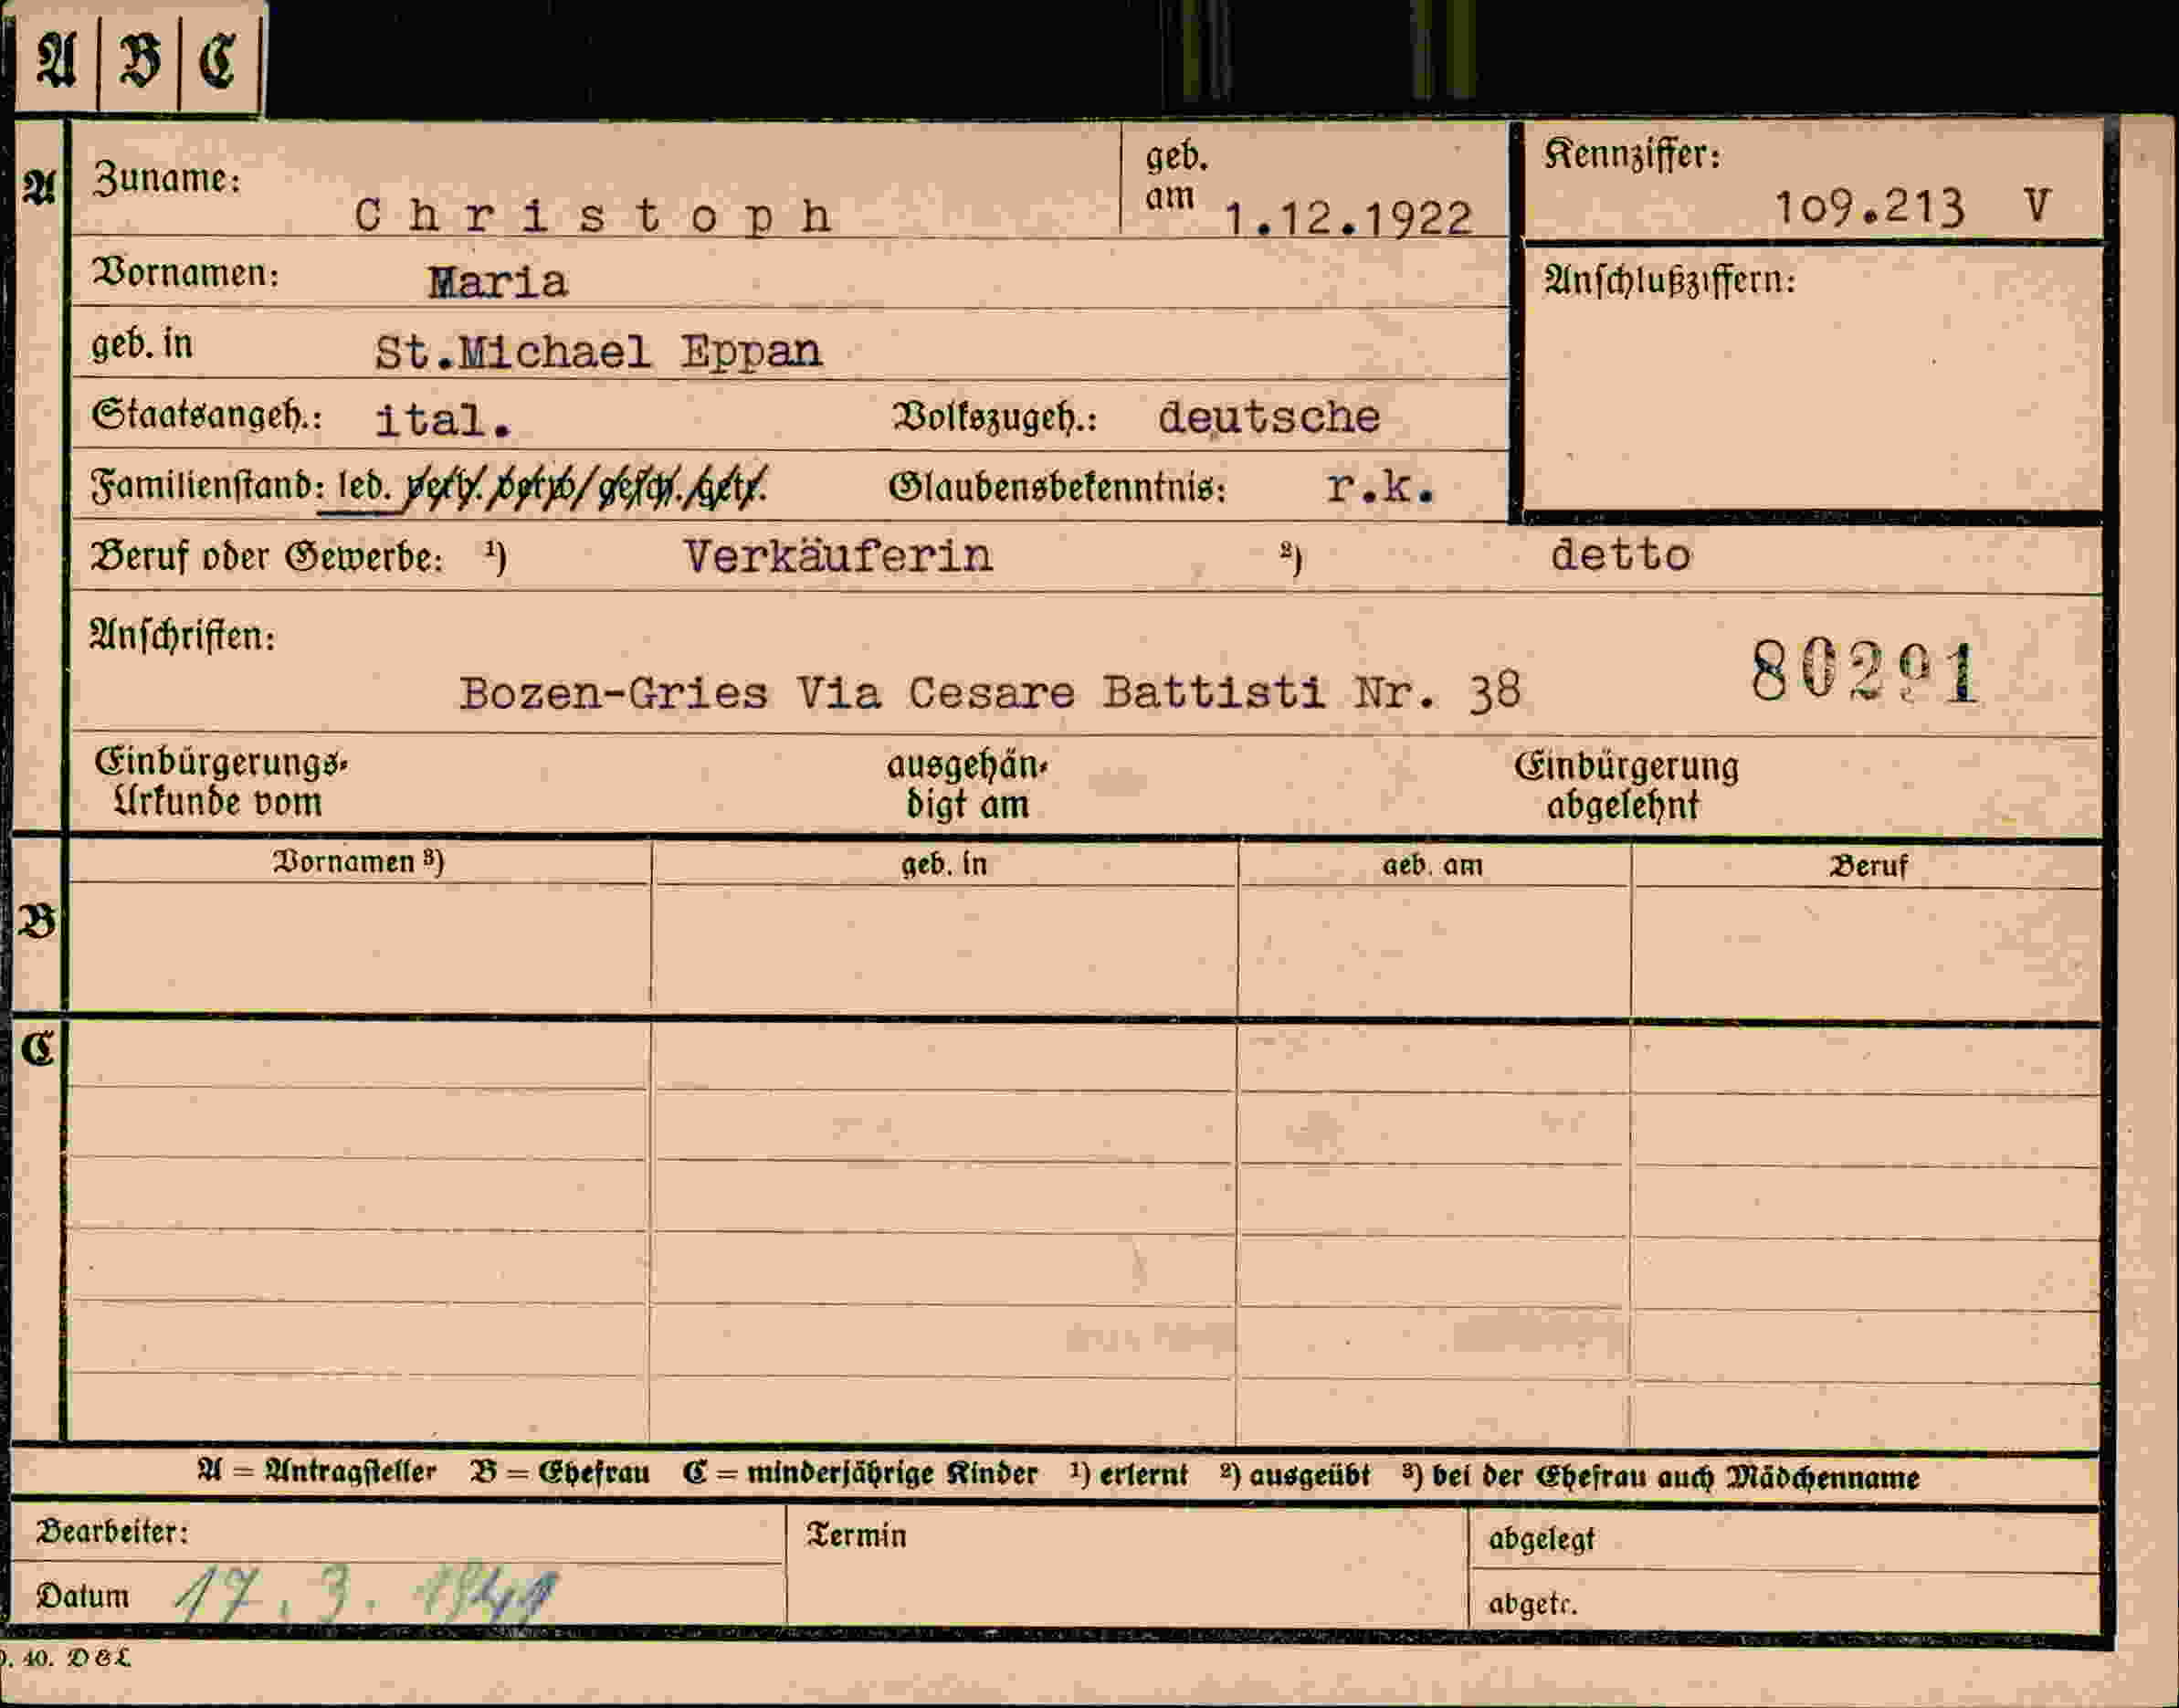 A B C
A Zuname: Christoph geb. am 1.12.1922 Kennziffer: 109.213 V
Vornamen: Maria Anschlußziffern:
geb. in St.Michael Eppan
Staatsangeh.: ital. Volkszugeh.: deutsche
Familienstand: led. verh. verw. gesch. getr. Glaubensbekenntnis: r.k.
Beruf oder Gewerbe: ¹) Verkäuferin ²) detto
Anschriften:
Bozen-Gries Via Cesare Battisti Nr. 38 80291
Einbürgerungs- ausgehän- Einbürgerung
Urkunde vom digt am abgelehnt
Vornamen ³) geb. in geb. am Beruf
B
C
A = Antragsteller B = Ehefrau C = minderjährige Kinder ¹) erlernt ²) ausgeübt ³) bei der Ehefrau auch Mädchenname
Bearbeiter: Termin abgelegt
Datum 17. 3. 1941 abgetr.
. 40. D&L